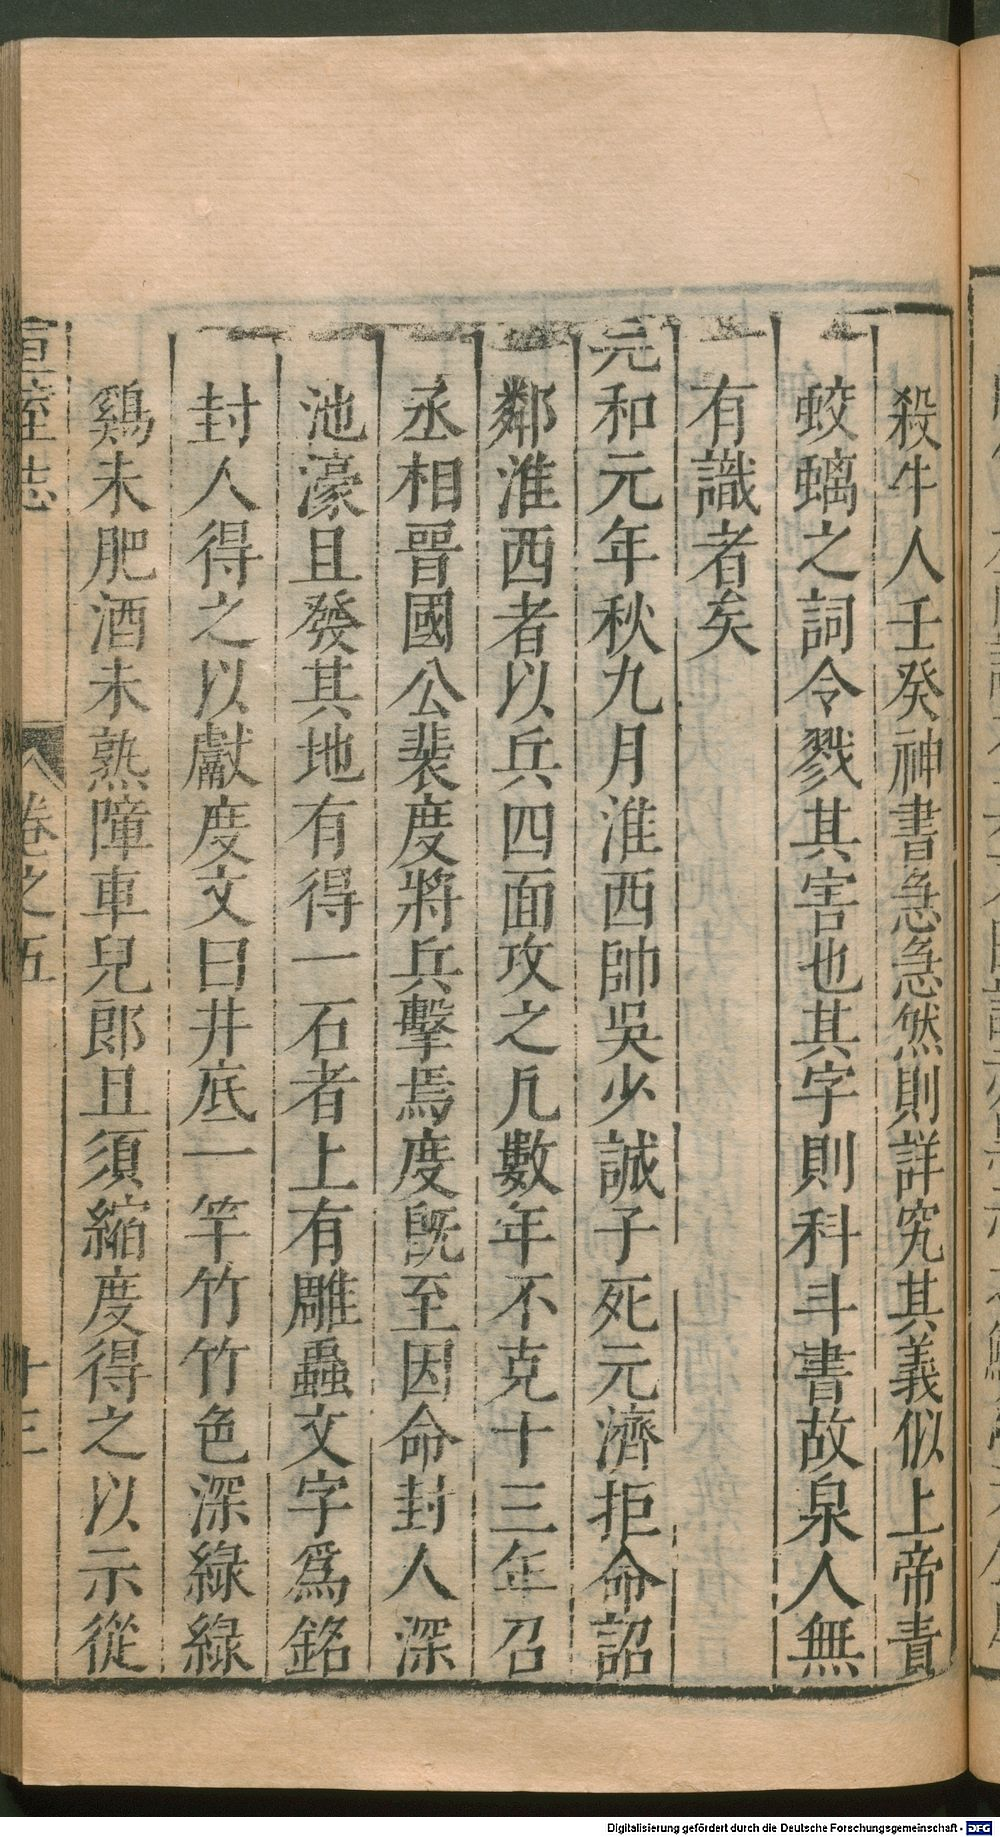 殺牛人壬癸神書急急然則詳究其義似上帝責
蛟螭之詞令戮其害也其字則科斗書故泉人無
有識者矣
元和元年秋九月淮西帥吳少誠子死元濟拒命詔
鄰淮西者以兵四面攻之凡數年不克十三年召
丞相晉國公裴度將兵擊焉度既至因命封人深
池濠且發其地有得一石者上有雕蟲文字爲銘
封人得之以獻度文曰井底一竿竹竹色深綠綠
鷄未肥酒未熟障車兒郎且須縮度得之以示從
宣室志 卷之五 十三
Digitalisierung gefördert durch die Deutsche Forschungsgemeinschaft - DFG